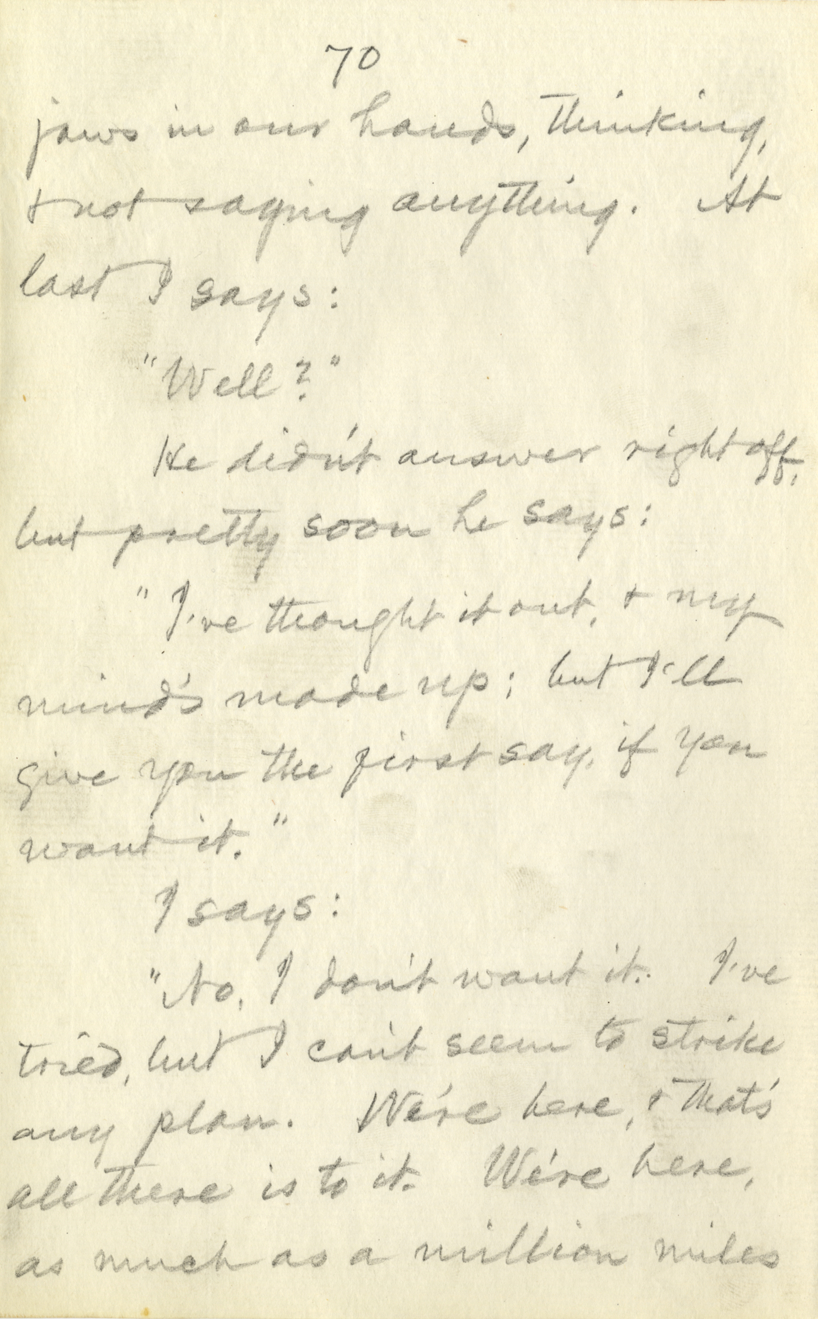 70
jaws in our hands, thinking,
& not saying anything. At
last I says:
"Well?"
He didn't answer right off,
but pretty soon he says:
"I've thought it out, & my
mind's made up; but I'll
give you the first say, if you
want it."
I says:
"No, I don't want it. I've
tried, but I can't seem to strike
any plan. We're here, & that's
all there is to it. We're here,
as much as a million miles